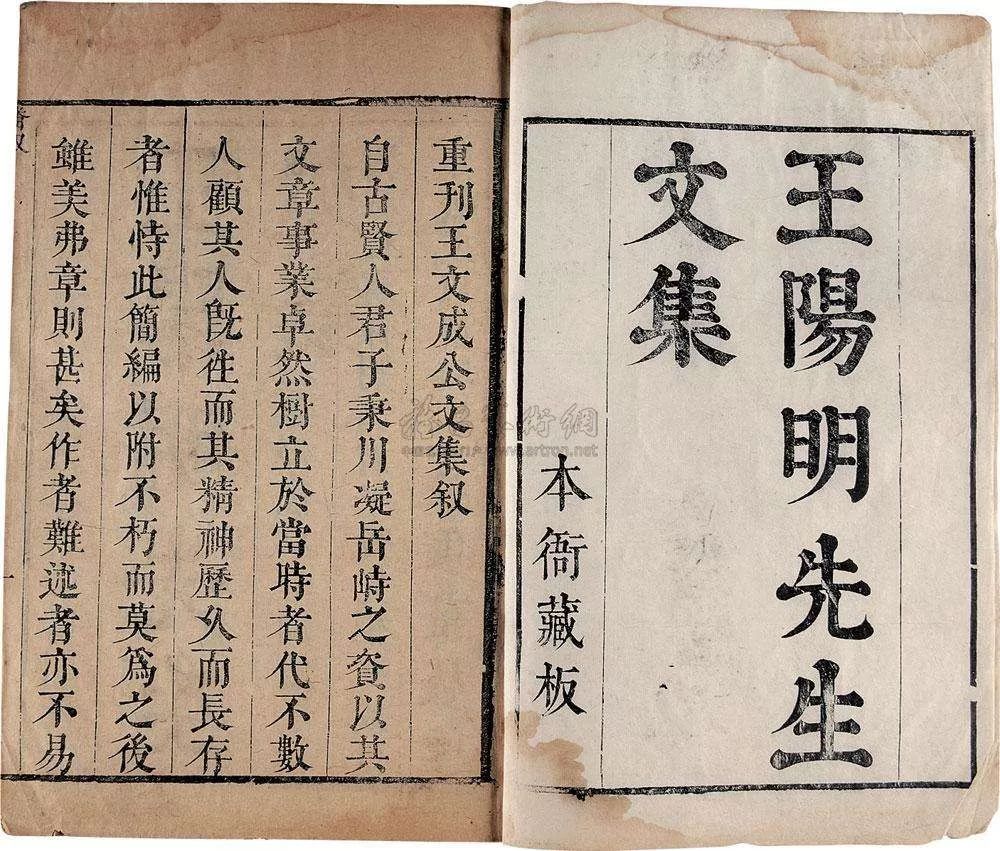 王陽明先生
文集
本衙藏板
重刊王文成公文集叙
自古賢人君子秉川凝岳峙之資以其
文章事業卓然樹立於當時者代不數
人顧其人既徃而其精神歷久而長存
者惟恃此簡編以附不朽而莫爲之後
雖美弗章則甚矣作者難述者亦不易